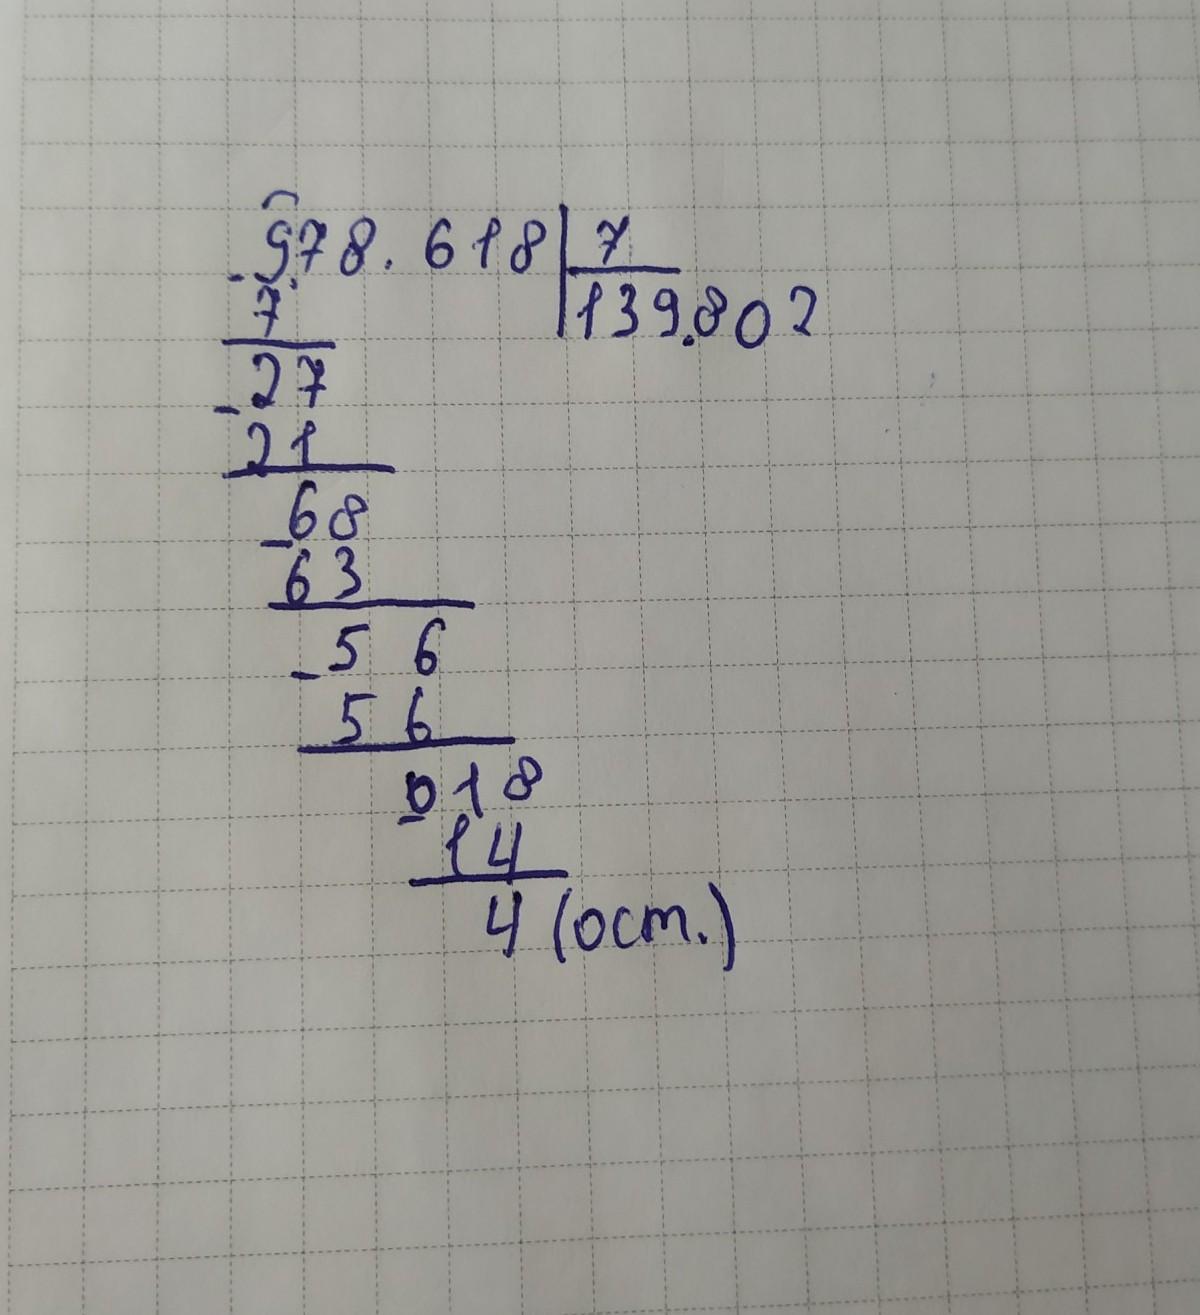 978.618 7
7 139.802
27
21
68
63
5 6
5 6
018
14
4 (ост.)